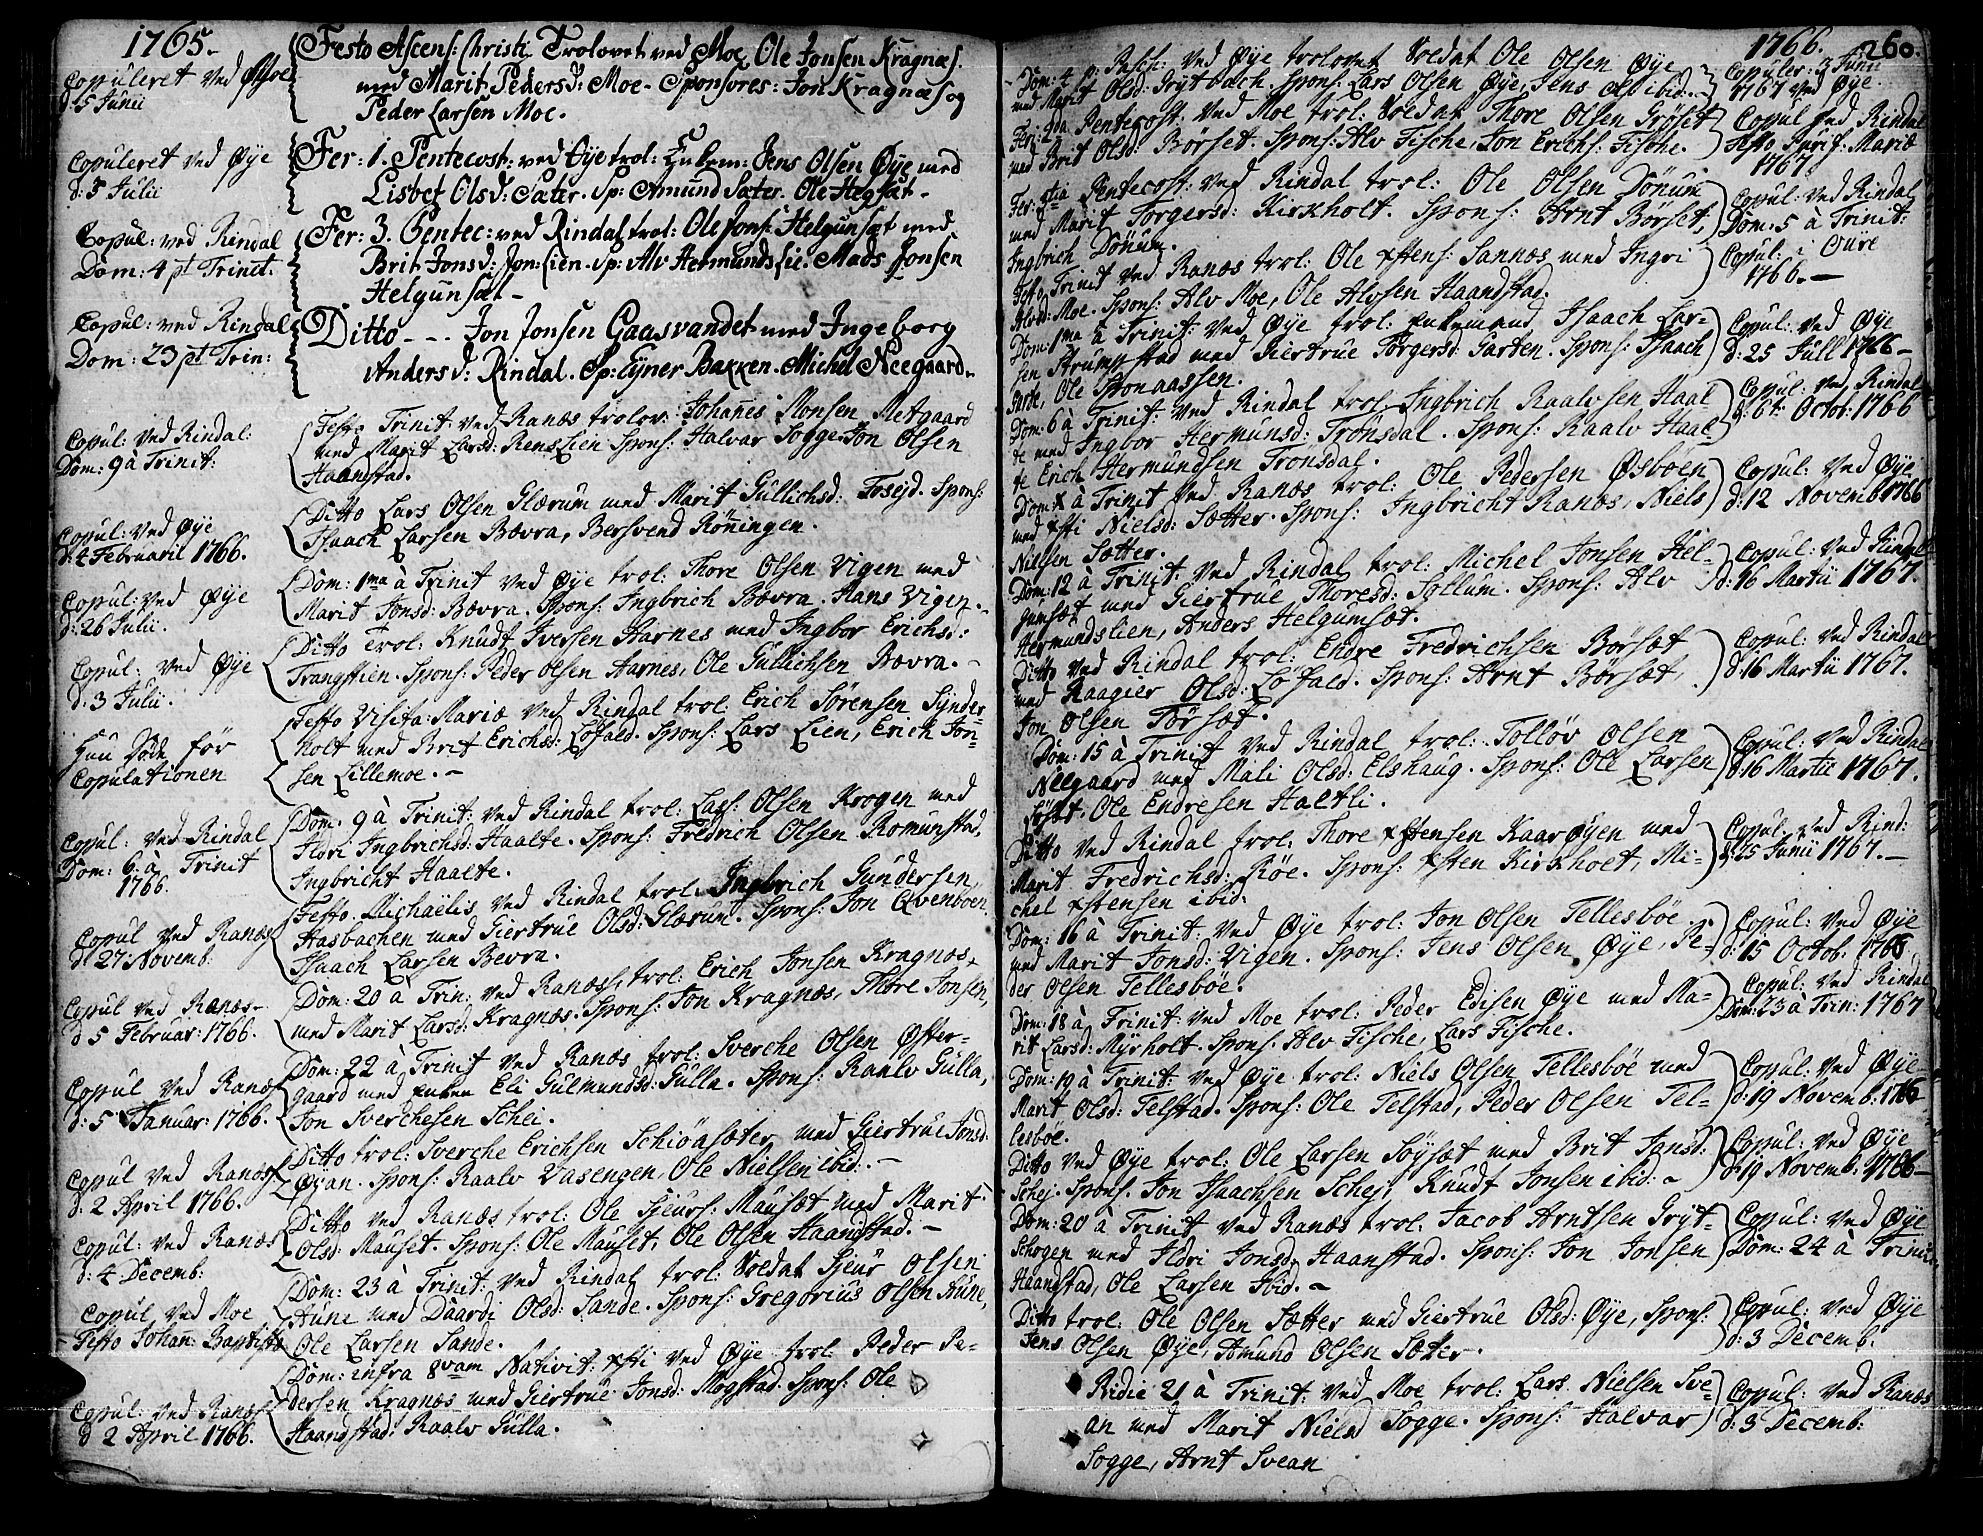 1765.
Copuleret ved Moe
d: 5 Junii
Festo Ascens: Christi Trolovet ved Moe Ole Jonsen Kragnæs
med Marit Pedersd: Moe - Sponsores: Jon Kragnæs og
Peder Larsen Moe.
Copuleret ved Øye
d: 5 Julii
Fer: 1. Pentecost: ved Øye trol: Jens Olsen Øye med
Lisbet Olsd: Sæter. Sp: Amund Sæter. Ole Hegsæt -
Copul: ved Rindal
Dom: 4 pt Trinit:
Fer: 3. Pentec: ved Rindal trol: Ole Jons: Helgunsæt med
Brit Jonsd: Jon: Lien. Sp: Alv Hermundslie. Mads Jonsen
Helgunsæt -
Copul: ved Rindal
Dom: 23 pt Trin:
Ditto - - - Jon Jonsen Gaasvandet med Ingeborg
Andersd: Rindal. Sp: Ejner Bakken. Michel Neegaard.
Copul: ved Rindal:
Dom: 9 à Trinit:
Festo Trinit: ved Ranæs trolov: Johañes Monsen Metgaard
med Marit Larsd: Renslien Spons: Halvar Sogge. Jon Olsen
Haanstad.
Copul: ved Øye
d: 4 Februarii 1766.
Ditto Lars Olsen Glærum med Marit Gullichsd: Fosejd. Spons:
Isaach Larsen Bævra, Bersvend Röñingen.
Copul: ved Øye
d: 26 Julii.
Dom: 1ma à Trinit ved Øye trol: Thore Olsen Vigen med
Marit Jonsd: Bævra. Spons: Ingbrich Bævra. Hans Vigen.
Copul: ved Øye
d: 3 Julii.
Ditto trol: Knudt Iversen Harnes med Ingbor Erichsd:
Trangstien. Spons: Peder Olsen Harnes, Ole Gullichsen Bævra. -
Hun døde før
Copulationen
Festo Visita: Mariæ ved Rindal trol: Erich Sörensen Synder-
holt med Brit Erichsd: Löfald. Spons: Lars Lien, Erich Jon-
sen Lillemoe. -
Copul: ved Rindal
Dom: 6 à Trinit
1766.
Dom. 9 à Trinit: ved Rindal trol: Lars Olsen Krogen med
Ildri Ingbrichsd: Haalte. Spons: Fredrich Olsen Romunstad,
Ingbricht Haalte.
Copul ved Ranæs
d: 27: Novemb:
Festo Michaëlis ved Rindal trol: Ingbrich Gundersen
Hasbachen med Giertrue Olsd: Glærum. Spons: Jon Qvenböen,
Isaach Larsen Bevra.
Copul ved Ranæs -
d 5 Februar: 1766.
Dom: 20 à Trin: ved Ranæs, trol: Erich Jonsen Kragnæs
med Marit Larsd: Kragnæs. Spons: Jon Kragnæs, Thore Jonsen,
Copul ved Ranæs
d: 5 Januar: 1766.
Dom: 22 à Trinit ved Ranæs trol: Sverche Olsen Øster-
gaard med Enken Eli Gulmundsd: Gulla. Spons: Raalv Gulla,
Jon Sverchesen Schei.
Copul ved Ranæs
d: 2 April 1766.
Ditto trol: Sverche Erichsen Schiönsæter med Giertrue Jonsd:
Øyan. Spons: Raalv Vasengen, Ole Nielsen ibid: -
Copul: ved Ranæs
d: 4 Decemb:
Ditto ved Ranæs trol: Ole Sjeurs: Mausæt med Marit
Olsd: Mauset. Spons: Ole Mauset, Ole Olsen Haanstad. -
Copul ved Moe
Festo Johan: Baptistæ
Dom: 23 à Trinit: ved Rindal trol: Soldat Sjeur Olsen
Aune med Daardi Olsd: Sande. Spons: Gregorius Olsen Aune,
Ole Larsen Sande.
Copul: ved Ranæs
d 2 April 1766.
Dom: infra 8vam Nativit: Xsti ved Øye trol: Peder Pe-
dersen Kragnæs med Giertrue Jonsd: Mogstad. Spons: Ole
Haanstad, Raalv Gulla.
1766. 260.
Dom: 4 p: Pasch: ved Øye trolovet Soldat Ole Olsen Øye
med Marit Olsd: Grytbach. Spons: Lars Olsen Øye, Jens Ols: ibid.
Copuler: 3 Junii
1767 ved Øye.
Fer: 2da Pentecost: ved Moe trol: Soldat Thore Olsen Gröset
med Brit Olsd: Börset. Spons: Alv Fische, Jon Erichs: Fische.
Copul ved Rindal
Festo Purif: Mariæ
1767.
Fer: 3tia Pentecost: ved Rindal trol: Ole Olsen Dönum
med Marit Torgersd: Kirkholt. Spons: Arnt Börset,
Ingbrich Dönum.
Copul: ved Rindal
Dom. 5 à Trinit:
Festo Trinit ved Ranæs trol: Ole Xstens: Sannæs med Ingri
Alvsd: Moe. Spons: Alv Moe, Ole Alvsen Haandstad.
Copul: i Oure
1766. -
Dom: 1ma à Trinit: ved Øye trol: Enkemand Isaach Lar-
sen Strumpstad med Giertrue Torgersd: Garten. Spons: Isaach
Garte, Ole Sponaassen.
Copul: ved Øye
d: 25 Julii 1766 -
Dom: 6 à Trinit: ved Rindal trol: Ingbrich Raalvsen Haal-
te med Ingbor Hermunsd: Tronsdal. Spons: Raalv Haal-
te Erich Hermundsen Tronsdal.
Copul: ved Rindal
d: 6t: Octob: 1766
Dom: à Trinit ved Ranæs trol: Ole Pedersen Øsböen
med Xsti Nielsd: Sætter. Spons: Ingbricht Ranæs, Niels
Nielsen Sætter.
Copul: ved Øye
d: 12 Novemb: 1766
Dom: 12 à Trinit: ved Rindal trol: Michel Jonsen Hel-
gunsæt med Giertrue Thoresd: Sollum. Spons: Alv
Hermundslien, Anders Helgumsæt.
Copul: ved Rindal
d: 16 Martii 1767.
Ditto ved Rindal trol: Endre Fredrichsen Börsæt
med Raagier Olsd: Löfald. Spons: Arnt Börsæt,
Jon Olsen Torsæt.
Copul: ved Rindal
d: 16 Martii 1767.
Dom: 15 à Trinit ved Rindal trol: Tollöv Olsen
Neegaard med Mali Olsd: Elshaug. Spons: Ole Larsen
Ole Endresen Haltli.
Copul: ved Rindal
d: 16 Martii 1767.
Ditto ved Rindal trol: Thore Xstensen Kaarøyen med
Marit Fredrichsd: Röe. Spons: Xsten Kirkholt, Mi-
chel Xstensen ibid:
Copul: ved Rind:
d: 25 Junii 1767. -
Dom: 16 à Trinit: ved Øye trol: Jon Olsen Tellesböe
med Marit Jonsd: Vigen. Spons: Jens Olsen Øye, Pe-
der Olsen Tellesböe.
Copul: ved Øye
d: 15 Octob: 1766
Dom: 18 à Trinit: ved Moe trol: Peder Edisen Øye med Ma-
rit Larsd: Myrholt. Spons: Alv Fische, Lars Fische.
Copul: ved Rindal
Dom: 23 à Trin: 1767
Dom: 19 à Trinit: ved Øye trol: Niels Olsen Tellesböe med
Marit Olsd: Telstad. Spons: Ole Telstad, Peder Olsen Tel-
lesböe.
Copul: ved Øye
d: 19 Novemb: 1766
Ditto ved Øye trol: Ole Larsen Söysæt med Brit Jonsd:
Schej. Spons: Jon Isaachsen Schej, Knudt Jonsen ibid: -
Copul: ved Øye
d: 19 Novemb: 1766 -
Dom: 20 à Trinit ved Ranæs trol: Jacob Arntsen Gryt-
schogen med Ildri Jonsd: Haanstad. Spons: Jon Jonsen
Haandstad, Ole Larsen Ibid. -
Copul: ved Øye
Dom: 24 à Trinit:
Ditto trol: Ole Olsen Sætter med Giertrue Olsd: Øye, Spons:
Jens Olsen Øye, Amund Olsen Sæter.
Copul: ved Øye
d: 3 Decemb.
21 à Trinit: ved Moe trol: Lars Nielsen Sve-
an med Marit Nielsd Sogge. Spons: Halvar
Sogge, Arnt Svean
Copul: ved Ranæs
d: 3 Decemb: